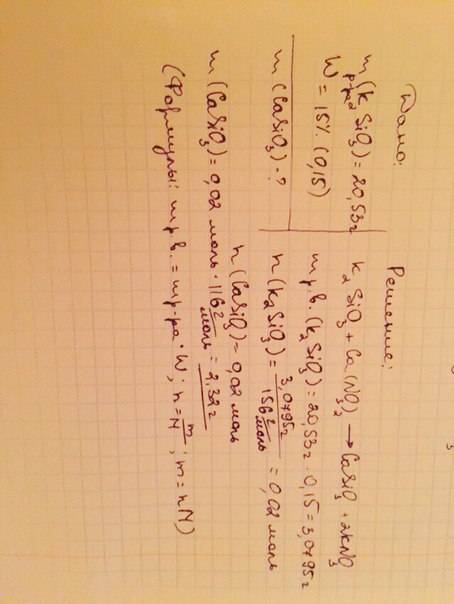 Дано:
m р-ра (K2SiO3) = 20,53г
W = 15% (0,15)
m (CaSiO3) - ?
Решение:
K2SiO3 + Ca(NO3)2 → CaSiO3 + 2KNO3
m р.в. (K2SiO3) = 20,53г · 0,15 = 3,0795г
n (K2SiO3) = 3,0795г / 156 г/моль = 0,02 моль
n (CaSiO3) = 0,02 моль
m (CaSiO3) = 0,02 моль · 116 г/моль = 2,32г
(Формулы: m р.в. = m р-ра · W; n = m/M; m = nM)